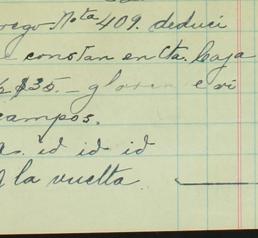 oego Nota 409. deduci
e constan en Cta. Caja
$35.-
campos.
id id id
la vuelta